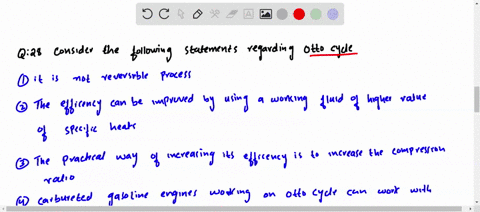 Q:28 Consider the following statements regarding Otto cycle
① it is not reversible process
② The efficency can be improved by using a working fluid of higher value
of specific heats
③ The practical way of increasing its efficency is to increase the compression
ratio
④ carbureted gasoline engines working on otto cycle can work with